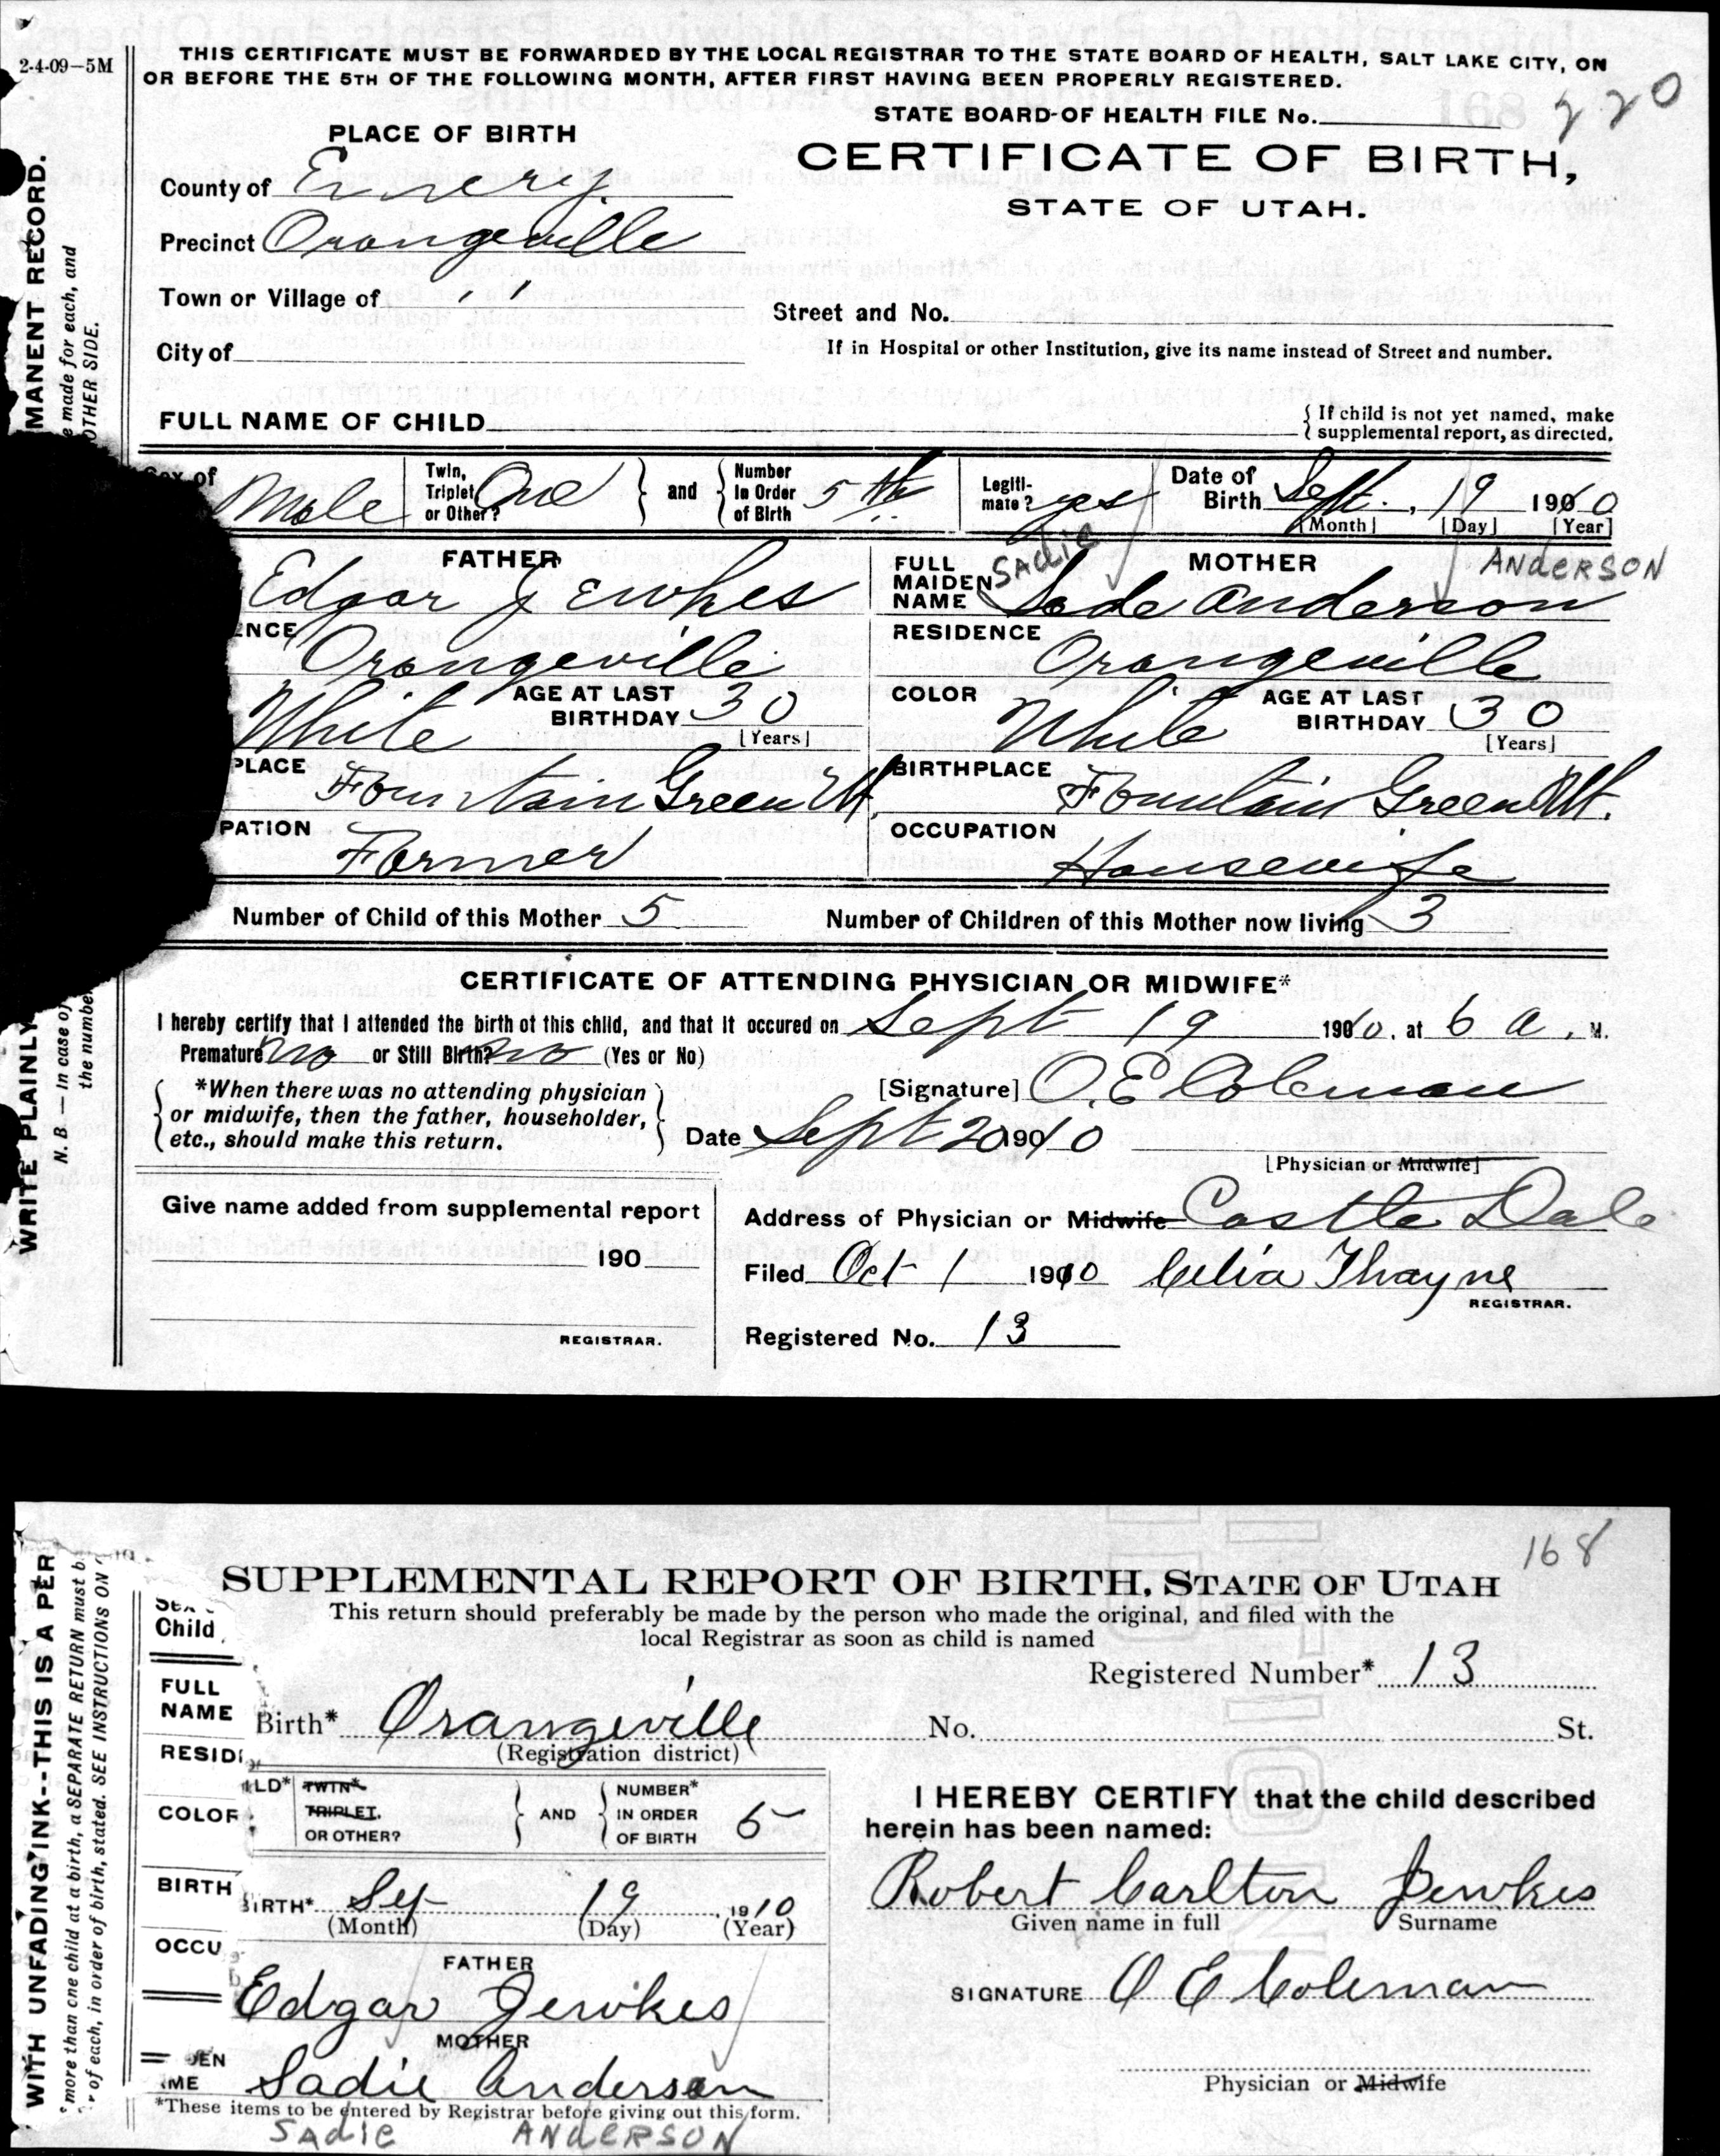 2-4-09-5M
THIS CERTIFICATE MUST BE FORWARDED BY THE LOCAL REGISTRAR TO THE STATE BOARD OF HEALTH, SALT LAKE CITY, ON
OR BEFORE THE 5TH OF THE FOLLOWING MONTH, AFTER FIRST HAVING BEEN PROPERLY REGISTERED.
STATE BOARD OF HEALTH FILE No. 220
168
PLACE OF BIRTH
CERTIFICATE OF BIRTH,
STATE OF UTAH.
County of Emery
Precinct Orangeville
Town or Village of ''
Street and No.
City of
If in Hospital or other Institution, give its name instead of Street and number.
FULL NAME OF CHILD
{ If child is not yet named, make
supplemental report, as directed.
Sex of Male
Twin, Triplet or Other? One } and { Number in Order of Birth 5th
Legitimate? yes
Date of Birth Sept. 19 1910
[Month] [Day] [Year]
FATHER
Edgar Jewkes
FULL MAIDEN NAME MOTHER
SAdiE ANdERSON
Sade Anderson
ENCE Orangeville
RESIDENCE Orangeville
White AGE AT LAST BIRTHDAY 30
[Years]
COLOR White AGE AT LAST BIRTHDAY 30
[Years]
PLACE Fountain Green Ut.
BIRTHPLACE Fountain Green Ut.
PATION Farmer
OCCUPATION Housewife
Number of Child of this Mother 5 Number of Children of this Mother now living 3
CERTIFICATE OF ATTENDING PHYSICIAN OR MIDWIFE*
I hereby certify that I attended the birth of this child, and that it occured on Sept 19 1910. at 6 a. M.
Premature no or Still Birth? no (Yes or No)
{ *When there was no attending physician
or midwife, then the father, householder,
etc., should make this return. }
[Signature] O. E Coleman
Date Sept 20 1910
[Physician or Midwife]
Give name added from supplemental report
190
REGISTRAR.
Address of Physician or Midwife Castle Dale
Filed Oct 1 1910 Celia Thayne
REGISTRAR.
Registered No. 13
WRITE PLAINLY
MANENT RECORD.
N. B. — In case of
e made for each, and
the number
OTHER SIDE.
168
SUPPLEMENTAL REPORT OF BIRTH, STATE OF UTAH
This return should preferably be made by the person who made the original, and filed with the
local Registrar as soon as child is named
Child
Registered Number* 13
FULL
NAME
Birth* Orangeville No. St.
(Registration district)
RESID
LD* TWIN* TRIPLET, OR OTHER? } AND { NUMBER* IN ORDER OF BIRTH 5
COLOR
I HEREBY CERTIFY that the child described
herein has been named:
Robert Carlton Jewkes
Given name in full Surname
BIRTH
BIRTH* Sep 19 1910
(Month) (Day) (Year)
OCCU
FATHER
Edgar Jewkes
SIGNATURE O E Coleman
MOTHER
DEN
ME
Sadie Anderson
Physician or Midwife
*These items to be entered by Registrar before giving out this form.
SAdiE ANdERSON
WITH UNFADING INK--THIS IS A PER
more than one child at a birth, a SEPARATE RETURN must b
r of each, in order of birth, stated. SEE INSTRUCTIONS ON